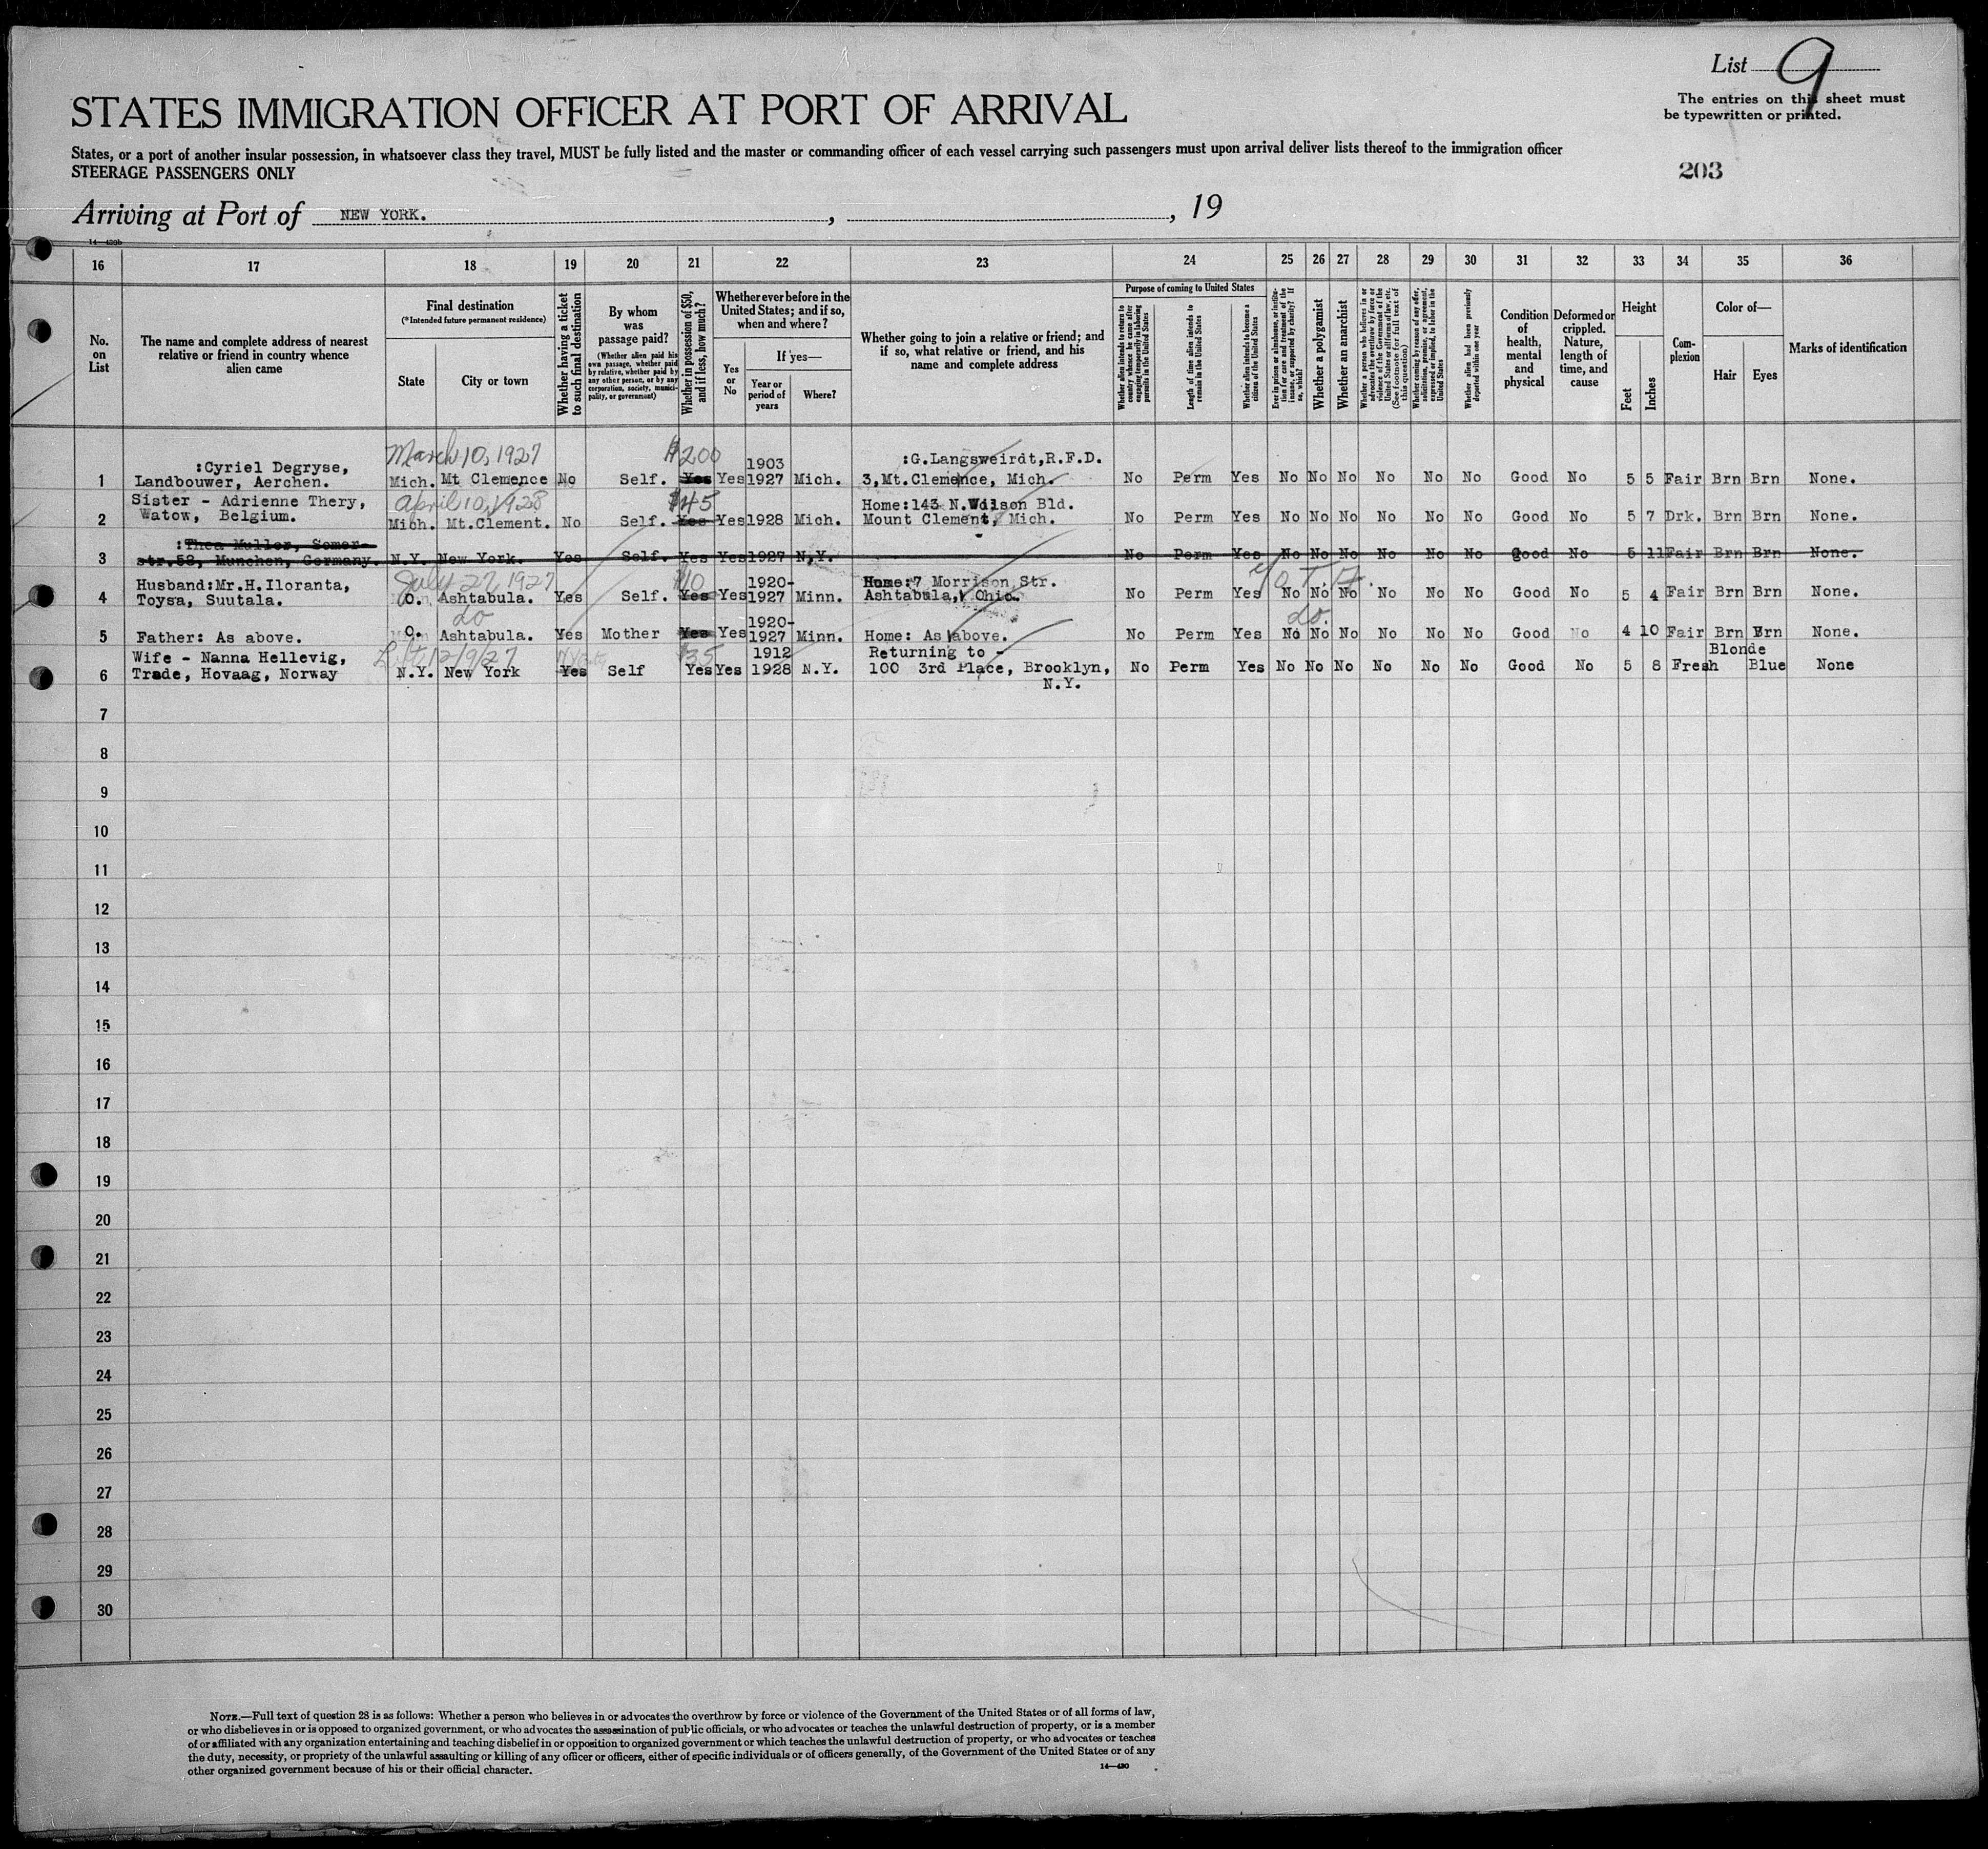 List 9
The entries on this sheet must
be typewritten or printed.
STATES IMMIGRATION OFFICER AT PORT OF ARRIVAL
States, or a port of another insular possession, in whatsoever class they travel, MUST be fully listed and the master or commanding officer of each vessel carrying such passengers must upon arrival deliver lists thereof to the immigration officer
STEERAGE PASSENGERS ONLY
203
Arriving at Port of NEW YORK. , , 19
14—430b
16 17 18 19 20 21 22 23 24 25 26 27 28 29 30 31 32 33 34 35 36
No.
on
List
The name and complete address of nearest
relative or friend in country whence
alien came
Final destination
(*Intended future permanent residence)
State City or town
Whether having a ticket
to such final destination
By whom
was
passage paid?
(Whether alien paid his
own passage, whether paid
by relative, whether paid by
any other person, or by any
corporation, society, munici-
pality, or government)
Whether in possession of $50,
and if less, how much?
Whether ever before in the
United States; and if so,
when and where?
Yes
or
No
If yes—
Year or
period of
years
Where?
Whether going to join a relative or friend; and
if so, what relative or friend, and his
name and complete address
Purpose of coming to United States
Whether alien intends to return to
country whence he came after
engaging temporarily in laboring
pursuits in the United States
Length of time alien intends to
remain in the United States
Whether alien intends to become a
citizen of the United States
Ever in prison or almshouse, or institu-
tion for care and treatment of the
insane, or supported by charity? If
so, which?
Whether a polygamist
Whether an anarchist
Whether a person who believes in or
advocates the overthrow by force or
violence of the Government of the
United States or all forms of law, etc.
(See footnote for full text of
this question)
Whether coming by reason of any offer,
solicitation, promise, or agreement,
expressed or implied, to labor in the
United States
Whether alien had been previously
deported within one year
Condition
of
health,
mental
and
physical
Deformed or
crippled.
Nature,
length of
time, and
cause
Height
Feet Inches
Com-
plexion
Color of—
Hair Eyes
Marks of identification
March 10, 1927 $200
:Cyriel Degryse, 1903 :G.Langsweirdt,R.F.D.
1 Landbouwer, Aerchen. Mich. Mt Clemence No Self. Yes Yes 1927 Mich. 3,Mt.Clemence, Mich. No Perm Yes No No No No No No Good No 5 5 Fair Brn Brn None.
Sister - Adrienne Thery, April 10, 1928 $45 Home:143 N.Wilson Bld.
2 Watow, Belgium. Mich. Mt.Clement. No Self. Yes Yes 1928 Mich. Mount Clement, Mich. No Perm Yes No No No No No No Good No 5 7 Drk. Brn Brn None.
:Thea Muller, Somer-
3 str.58, Munchen, Germany. N.Y. New York. Yes Self. Yes Yes 1927 N,Y. No Perm Yes No No No No No No Good No 5 11 Fair Brn Brn None.
Husband:Mr.H.Iloranta, July 27, 1927 $10 1920- Home:7 Morrison Str.
4 Toysa, Suutala. O. Ashtabula. Yes Self. Yes Yes 1927 Minn. Ashtabula, Ohio. No Perm Yes No No No No No No Good No 5 4 Fair Brn Brn None.
do 1920- do.
5 Father: As above. O. Ashtabula. Yes Mother Yes Yes 1927 Minn. Home: As above. No Perm Yes No No No No No No Good No 4 10 Fair Brn Brn None.
Wife - Nanna Hellevig, 12/9/27 $35 1912 Returning to - Blonde
6 Trade, Hovaag, Norway N.Y. New York Yes Self Yes Yes 1928 N.Y. 100 3rd Place, Brooklyn, No Perm Yes No No No No No No Good No 5 8 Fresh Blue None
N.Y.
7
8
9
10
11
12
13
14
15
16
17
18
19
20
21
22
23
24
25
26
27
28
29
30
NOTE.—Full text of question 28 is as follows: Whether a person who believes in or advocates the overthrow by force or violence of the Government of the United States or of all forms of law,
or who disbelieves in or is opposed to organized government, or who advocates the assassination of public officials, or who advocates or teaches the unlawful destruction of property, or is a member
of or affiliated with any organization entertaining and teaching disbelief in or opposition to organized government or which teaches the unlawful destruction of property, or who advocates or teaches
the duty, necessity, or propriety of the unlawful assaulting or killing of any officer or officers, either of specific individuals or of officers generally, of the Government of the United States or of any
other organized government because of his or their official character.
14—430